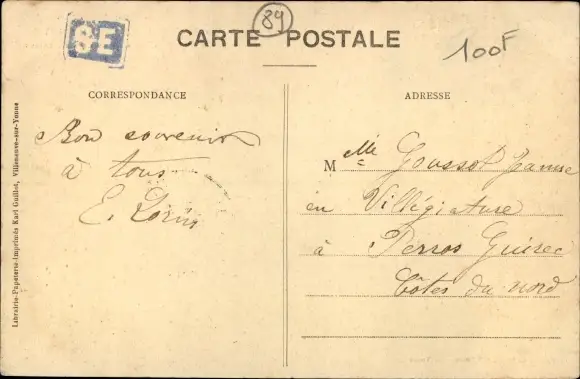 89
SE
CARTE POSTALE
100F
CORRESPONDANCE
ADRESSE
Bon souvenir
à tous
E.
Mlle Goussot Jeanne
en Villégiature
à Perros Guirec
Côtes du nord
Librairie-Papeterie-Imprimés Karl Guillot, Villeneuve-sur-Yonne